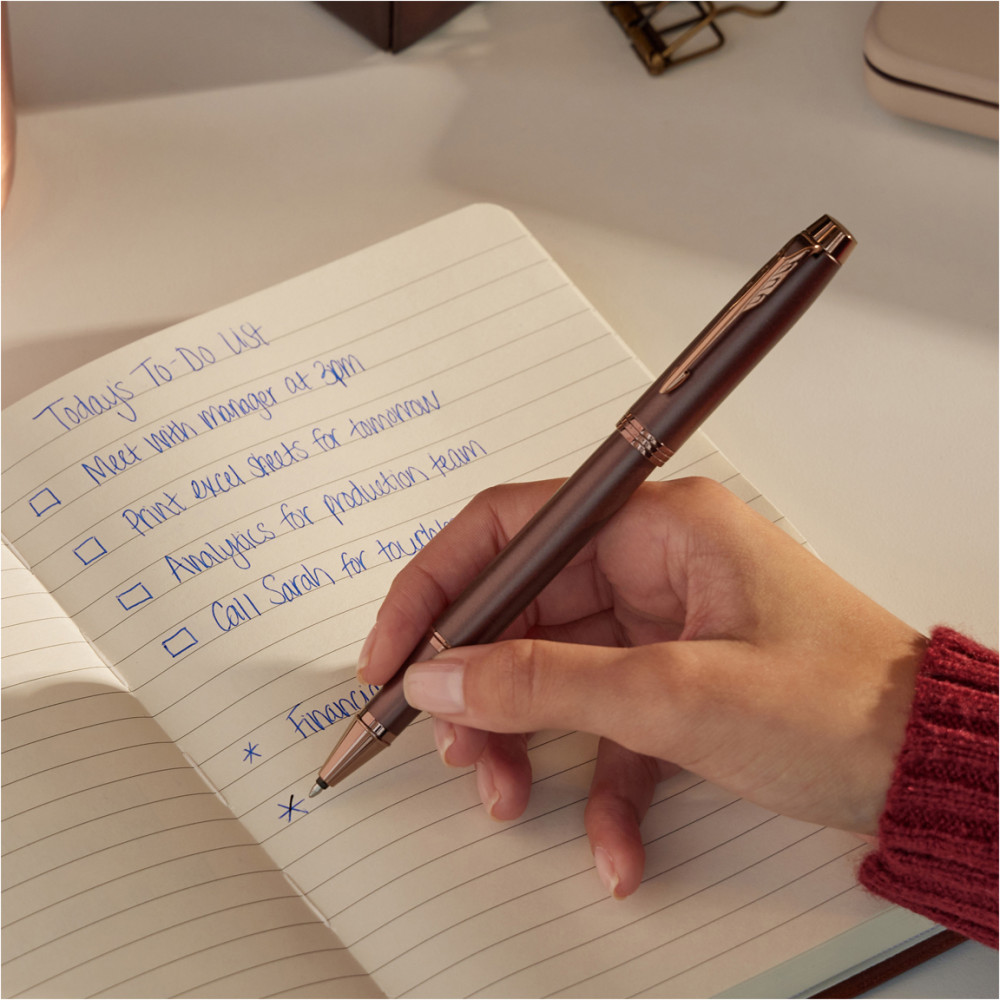 Today's To-Do List
Meet with manager at 3pm
Print excel sheets for tomorrow
Analytics for production team
Call Sarah for